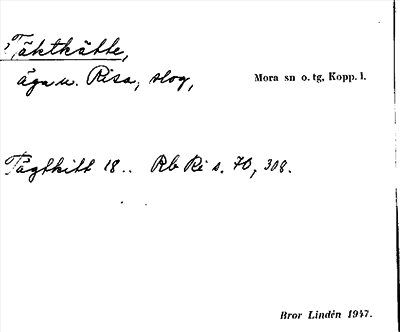 Täkthätte,
äga u. Risa, slog,
Mora sn o. tg, Kopp. l.
Tägthitt 18.. Rb Ri s. 70, 308.
Bror Lindén 1947.